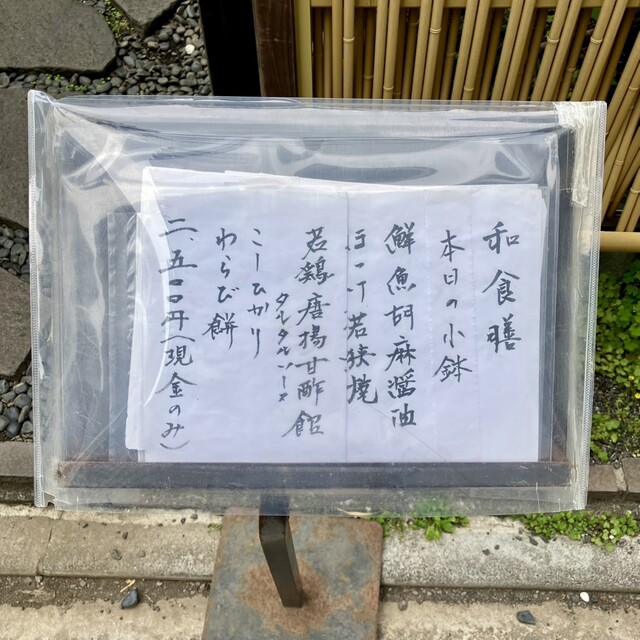 和食膳
本日の小鉢
鮮魚胡麻醤油
若狭焼
若鶏唐揚甘酢餡
タルタルソース
こしひかり
わらび餅
二、五〇〇円(現金のみ)